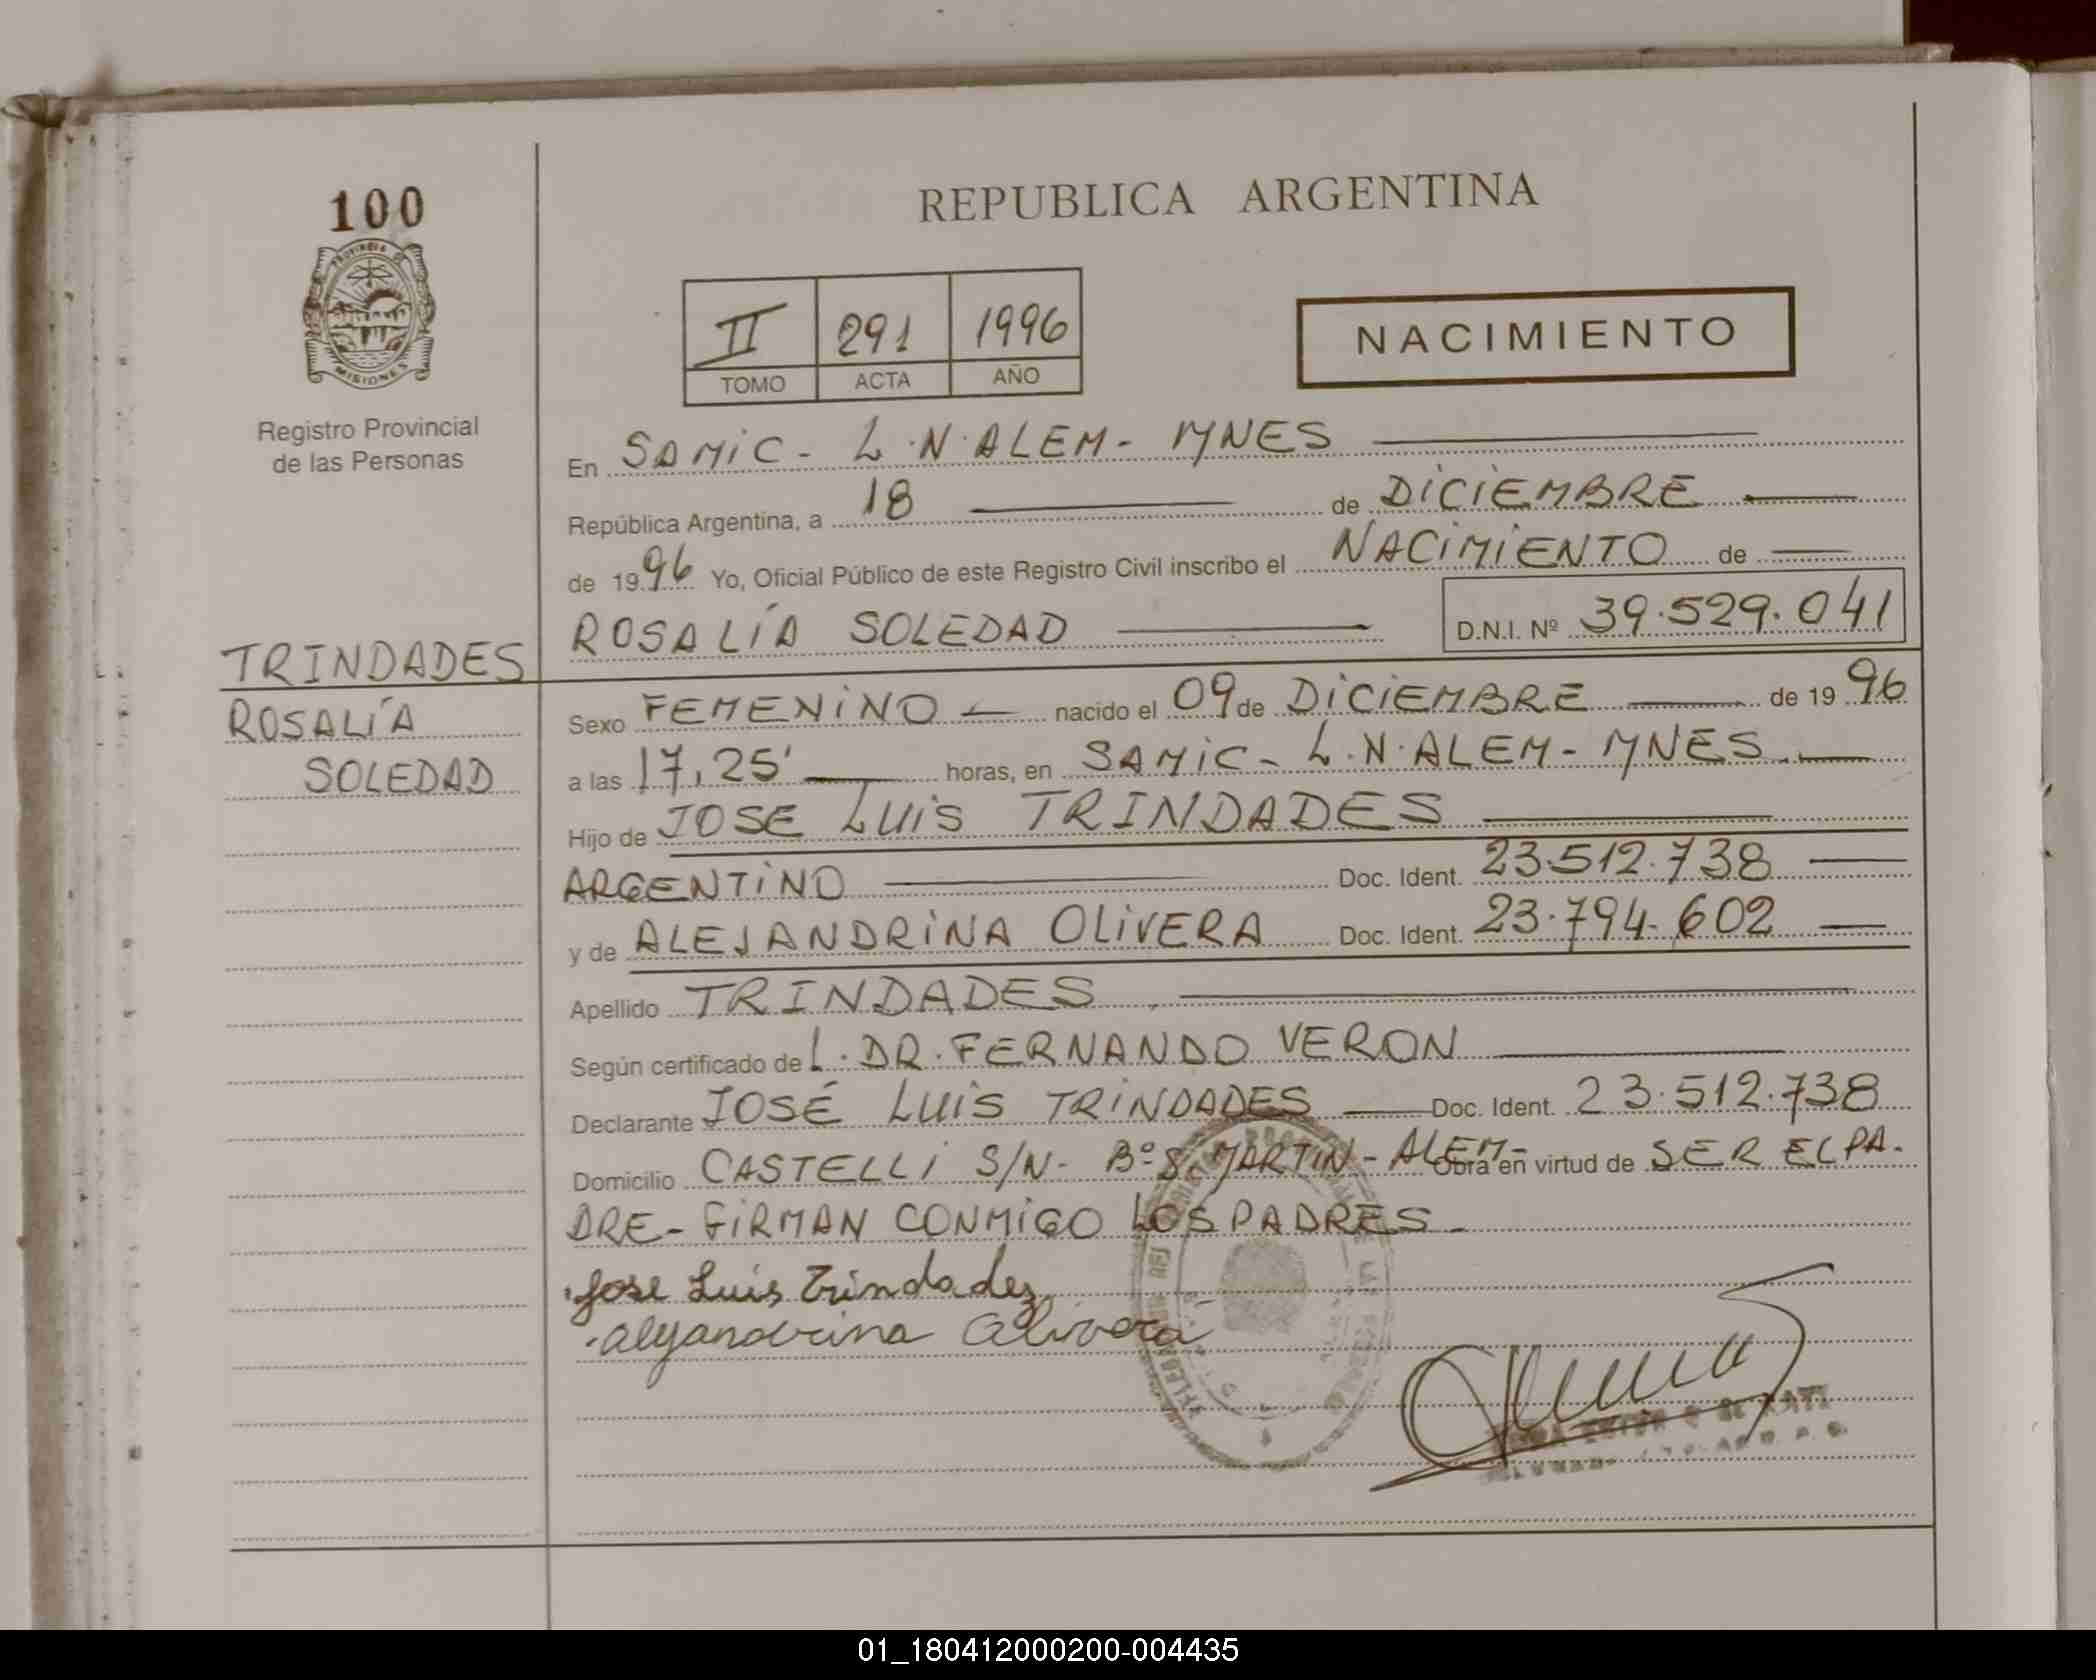 100
PROVINCIA DE
MISIONES
Registro Provincial
de las Personas
TRINDADES
ROSALÍA
SOLEDAD
REPUBLICA ARGENTINA
II 291 1996
TOMO ACTA AÑO
NACIMIENTO
En SAMIC - L.N.ALEM - MNES
República Argentina, a 18 de DICIEMBRE
de 1996 Yo, Oficial Público de este Registro Civil inscribo el NACIMIENTO de
ROSALÍA SOLEDAD D.N.I. Nº 39.529.041
Sexo FEMENINO nacido el 09 de DICIEMBRE de 1996
a las 17,25' horas, en SAMIC - L.N.ALEM - MNES
Hijo de JOSE LUIS TRINDADES
ARGENTINO Doc. Ident. 23.512.738
y de ALEJANDRINA OLIVERA Doc. Ident. 23.794.602
Apellido TRINDADES
Según certificado de L. DR. FERNANDO VERON
Declarante JOSÉ LUIS TRINDADES Doc. Ident. 23.512.738
Domicilio CASTELLI S/N - Bº S. MARTIN - ALEM - Obra en virtud de SER EL PA-
DRE - FIRMAN CONMIGO LOS PADRES -
Jose Luis Trindades
Alejandrina Olivera
01_180412000200-004435